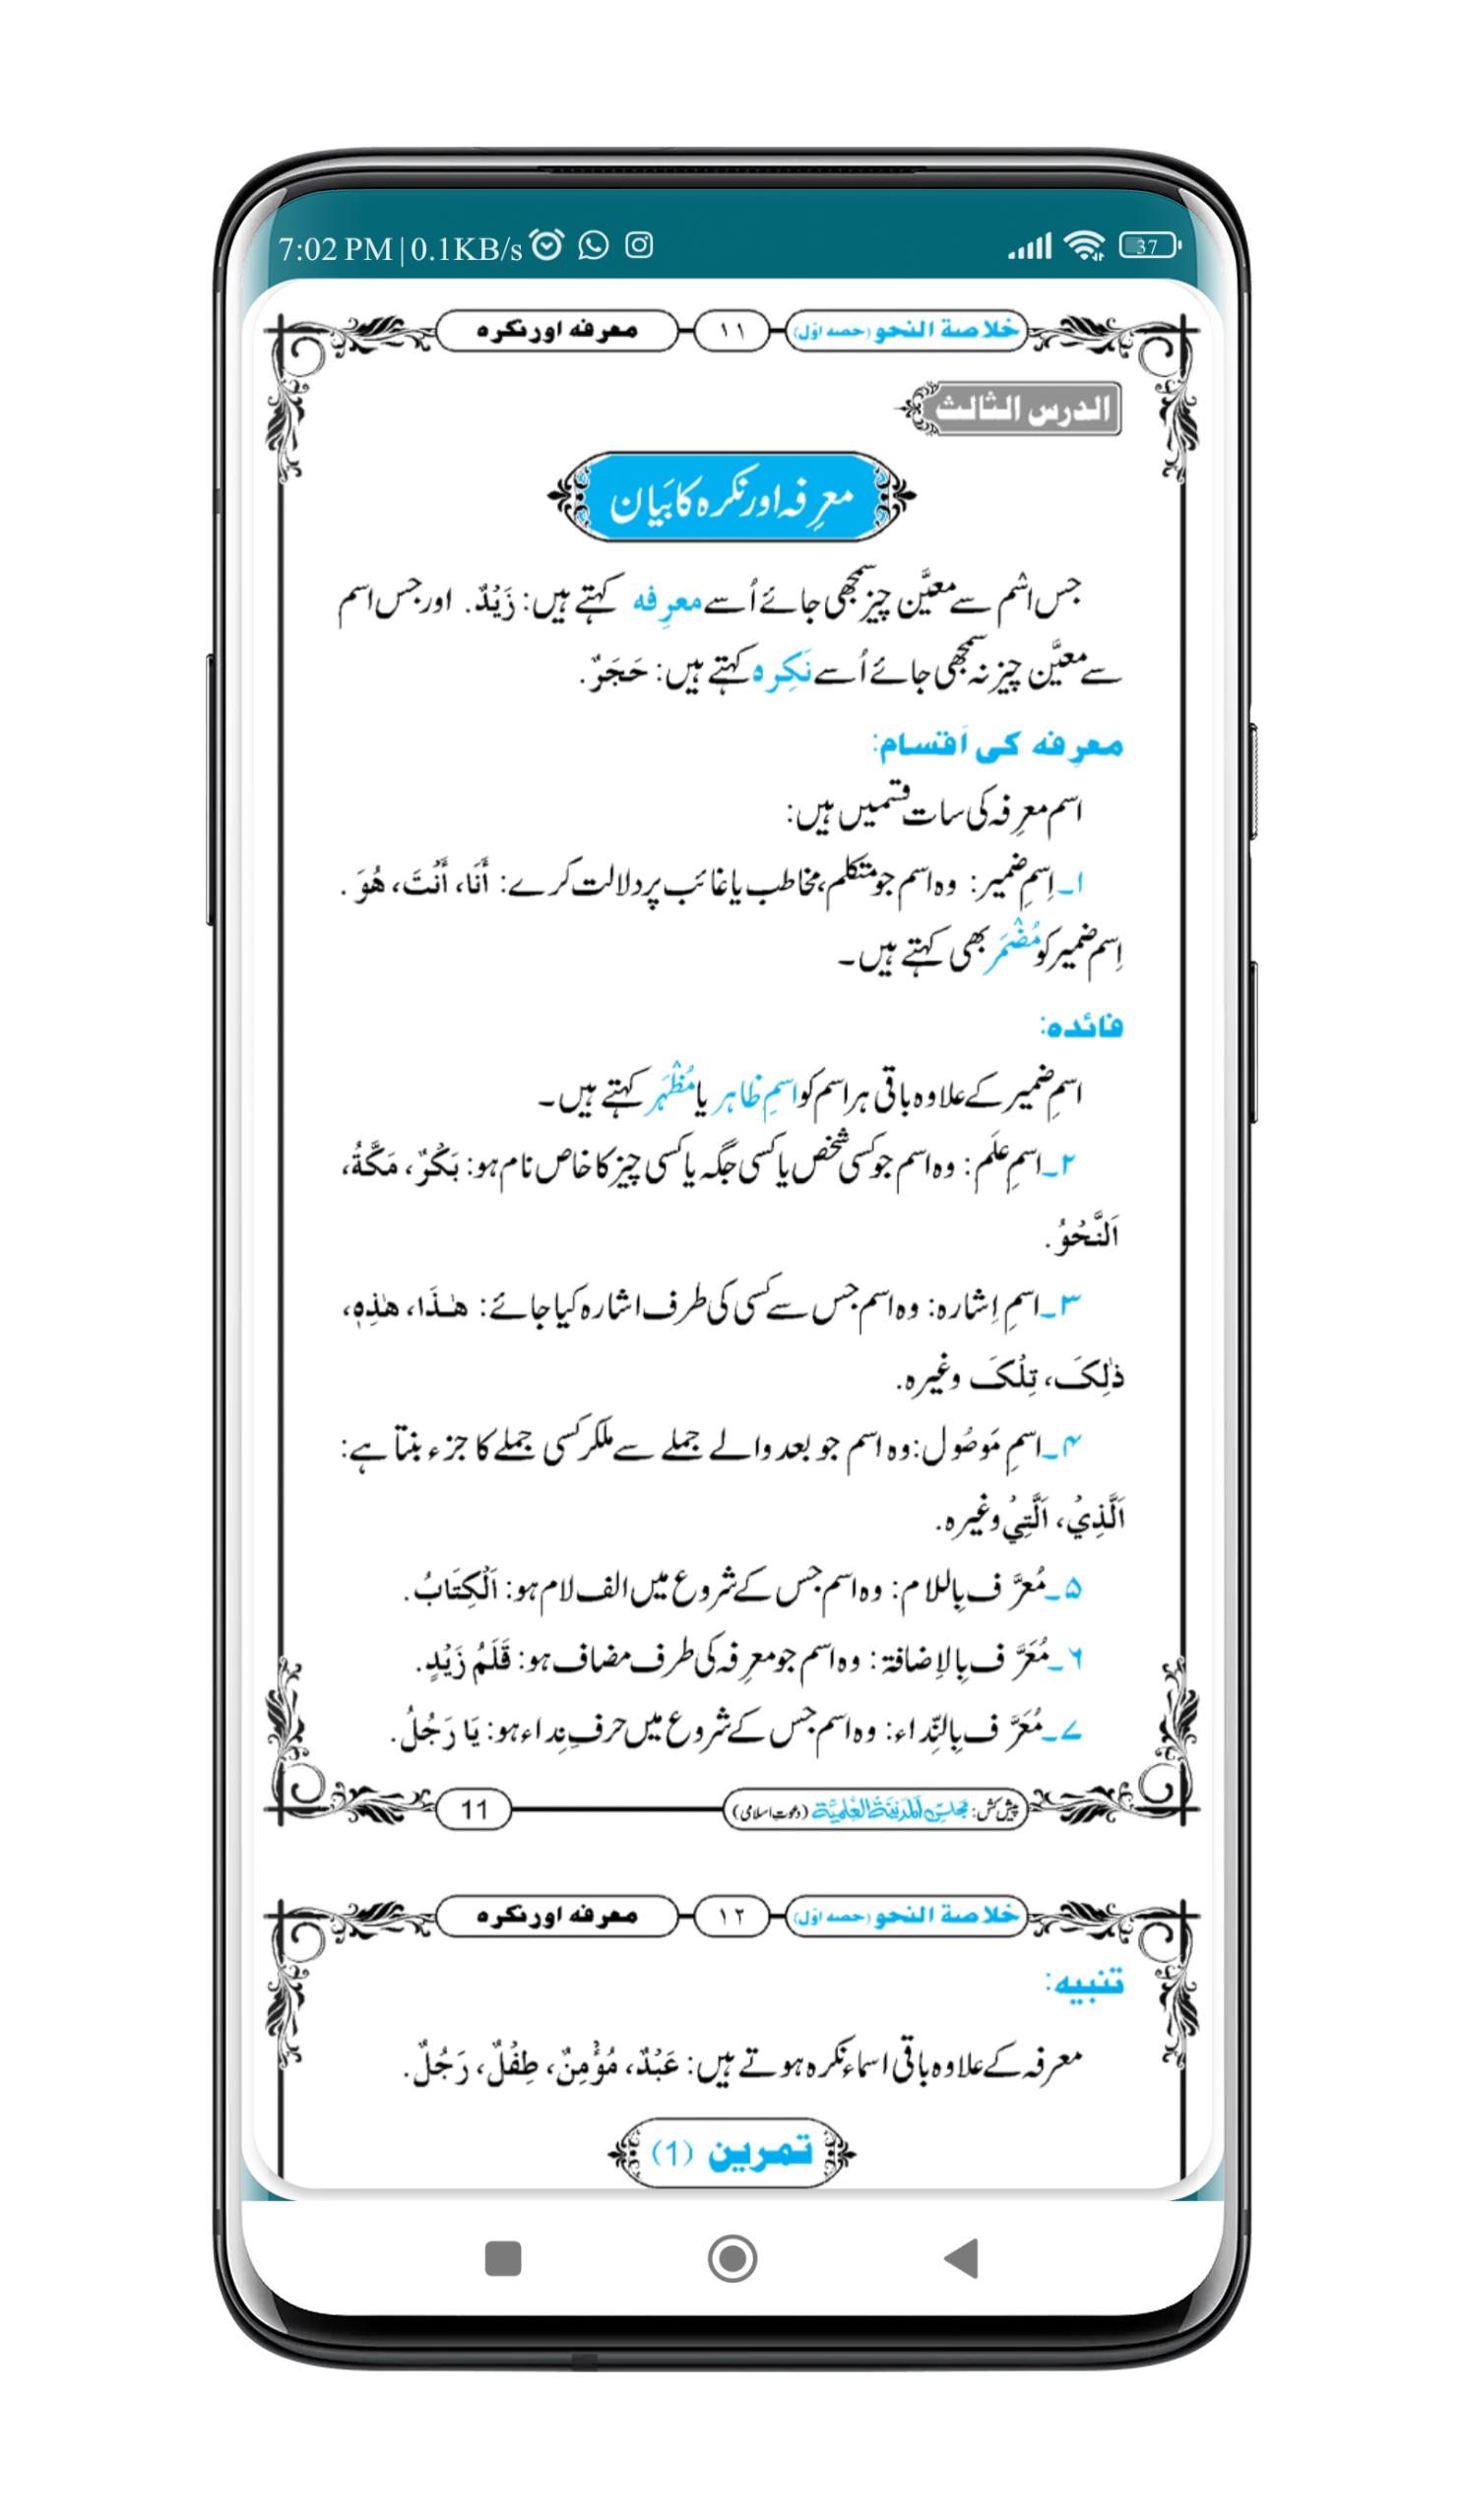 7:02 PM | 0.1KB/s 37
خلاصة النحو (حصہ اوّل) ۱۱ معرفہ اور نکرہ
الدرس الثالث
معرِفہ اور نکرہ کا بَیان
جس اسْم سے معیَّن چیز سمجھی جائے اُسے معرِفہ کہتے ہیں: زَیْدٌ. اور جس اسم
سے معیَّن چیز نہ سمجھی جائے اُسے نَکِرہ کہتے ہیں: حَجَرٌ.
معرِفہ کی اَقسام:
اسم معرِفہ کی سات قسمیں ہیں:
۱۔ اِسمِ ضمیر: وہ اسم جو متکلم، مخاطب یا غائب پر دلالت کرے: أَنَا، أَنْتَ، هُوَ .
اِسم ضمیر کو مُضْمَر بھی کہتے ہیں۔
فائدہ:
اسمِ ضمیر کے علاوہ باقی ہر اسم کو اسمِ ظاہر یا مُظْہَر کہتے ہیں۔
۲۔ اسمِ علَم: وہ اسم جو کسی شخص یا کسی جگہ یا کسی چیز کا خاص نام ہو: بَكْرٌ، مَكَّةُ،
اَلنَّحْوُ .
۳۔ اسمِ اِشارہ: وہ اسم جس سے کسی کی طرف اشارہ کیا جائے: هٰذَا، هٰذِهٖ،
ذٰلِکَ، تِلْکَ وغیرہ.
۴۔ اسمِ مَوصُول: وہ اسم جو بعد والے جملے سے ملکر کسی جملے کا جزء بنتا ہے:
اَلَّذِيْ، اَلَّتِيْ وغیرہ.
۵۔ مُعرَّف بِاللام: وہ اسم جس کے شروع میں الف لام ہو: اَلْکِتَابُ.
۶۔ مُعَرَّف بِالاِضافۃ: وہ اسم جو معرِفہ کی طرف مضاف ہو: قَلَمُ زَیْدٍ.
۷۔ مُعَرَّف بِالنِّداء: وہ اسم جس کے شروع میں حرفِ نِداء ہو: یَا رَجُلُ.
پیش کش: مجلس المدينة العلمية (دعوتِ اسلامی) 11
خلاصة النحو (حصہ اوّل) ۱۲ معرفہ اور نکرہ
تنبیہ:
معرفہ کے علاوہ باقی اسماء نکرہ ہوتے ہیں: عَبْدٌ، مُؤْمِنٌ، طِفْلٌ، رَجُلٌ.
تمرین (1)